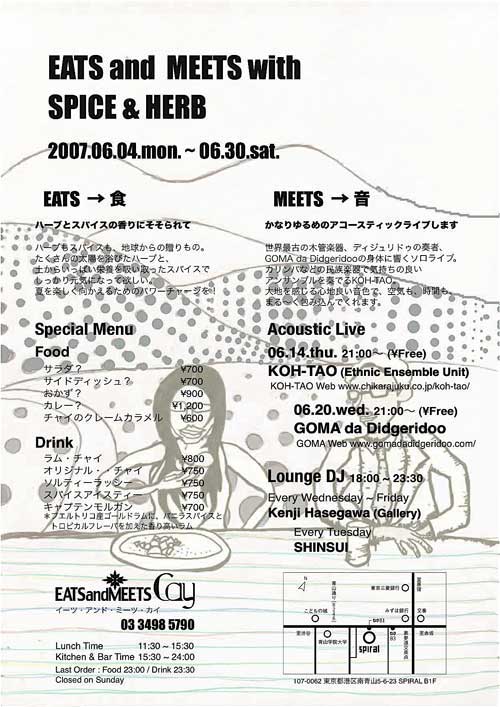 EATS and MEETS with
SPICE & HERB
2007.06.04.mon. ~ 06.30.sat.
EATS → 食
ハーブとスパイスの香りにそそられて
ハーブもスパイスも、地球からの贈りもの。
たくさんの太陽を浴びたハーブと、
土からいっぱい栄養を吸い取ったスパイスで
しっかり元気になって欲しい。
夏を楽しく向かえるためのパワーチャージを!!
Special Menu
Food
サラダ? ¥700
サイドディッシュ? ¥700
おかず? ¥900
カレー? ¥1,200
チャイのクレームカラメル ¥600
Drink
ラム・チャイ ¥800
オリジナル・・チャイ ¥750
ソルティーラッシー ¥750
スパイスアイスティー ¥750
キャプテンモルガン ¥700
*プエルトリコ産ゴールドラムに、バニラスパイスと
トロピカルフレーバを加えた香り高いラム
MEETS → 音
かなりゆるめのアコースティックライブします
世界最古の木管楽器、ディジュリドゥの奏者、
GOMA da Didgeridooの身体に響くソロライブ。
カリンバなどの民族楽器で気持ちの良い
アンサンブルを奏でるKOH-TAO。
大地を感じる心地良い音色で、空気も、時間も、
まる~く包み込んでくれます。
Acoustic Live
06.14.thu. 21:00~ (¥Free)
KOH-TAO (Ethnic Ensemble Unit)
KOH-TAO Web www.chikerajuku.co.jp/koh-tao/
06.20.wed. 21:00~ (¥Free)
GOMA da Didgeridoo
GOMA Web www.gomadadidgeridoo.com/
Lounge DJ 18:00 ~ 23:30
Every Wednesday ~ Friday
Kenji Hasegawa (Gallery)
Every Tuesday
SHINSUI
EATSandMEETS Cay
イーツ・アンド・ミーツ・カイ
03 3498 5790
Lunch Time 11:30 ~ 15:30
Kitchen & Bar Time 15:30 ~ 24:00
Last Order : Food 23:00 / Drink 23:30
Closed on Sunday
N
青山通り
東京三菱銀行
こどもの城
みずほ銀行
交番
至渋谷
至赤坂
青山学院大学
spiral
B1
B3
107-0062 東京都港区南青山5-6-23 SPIRAL B1F